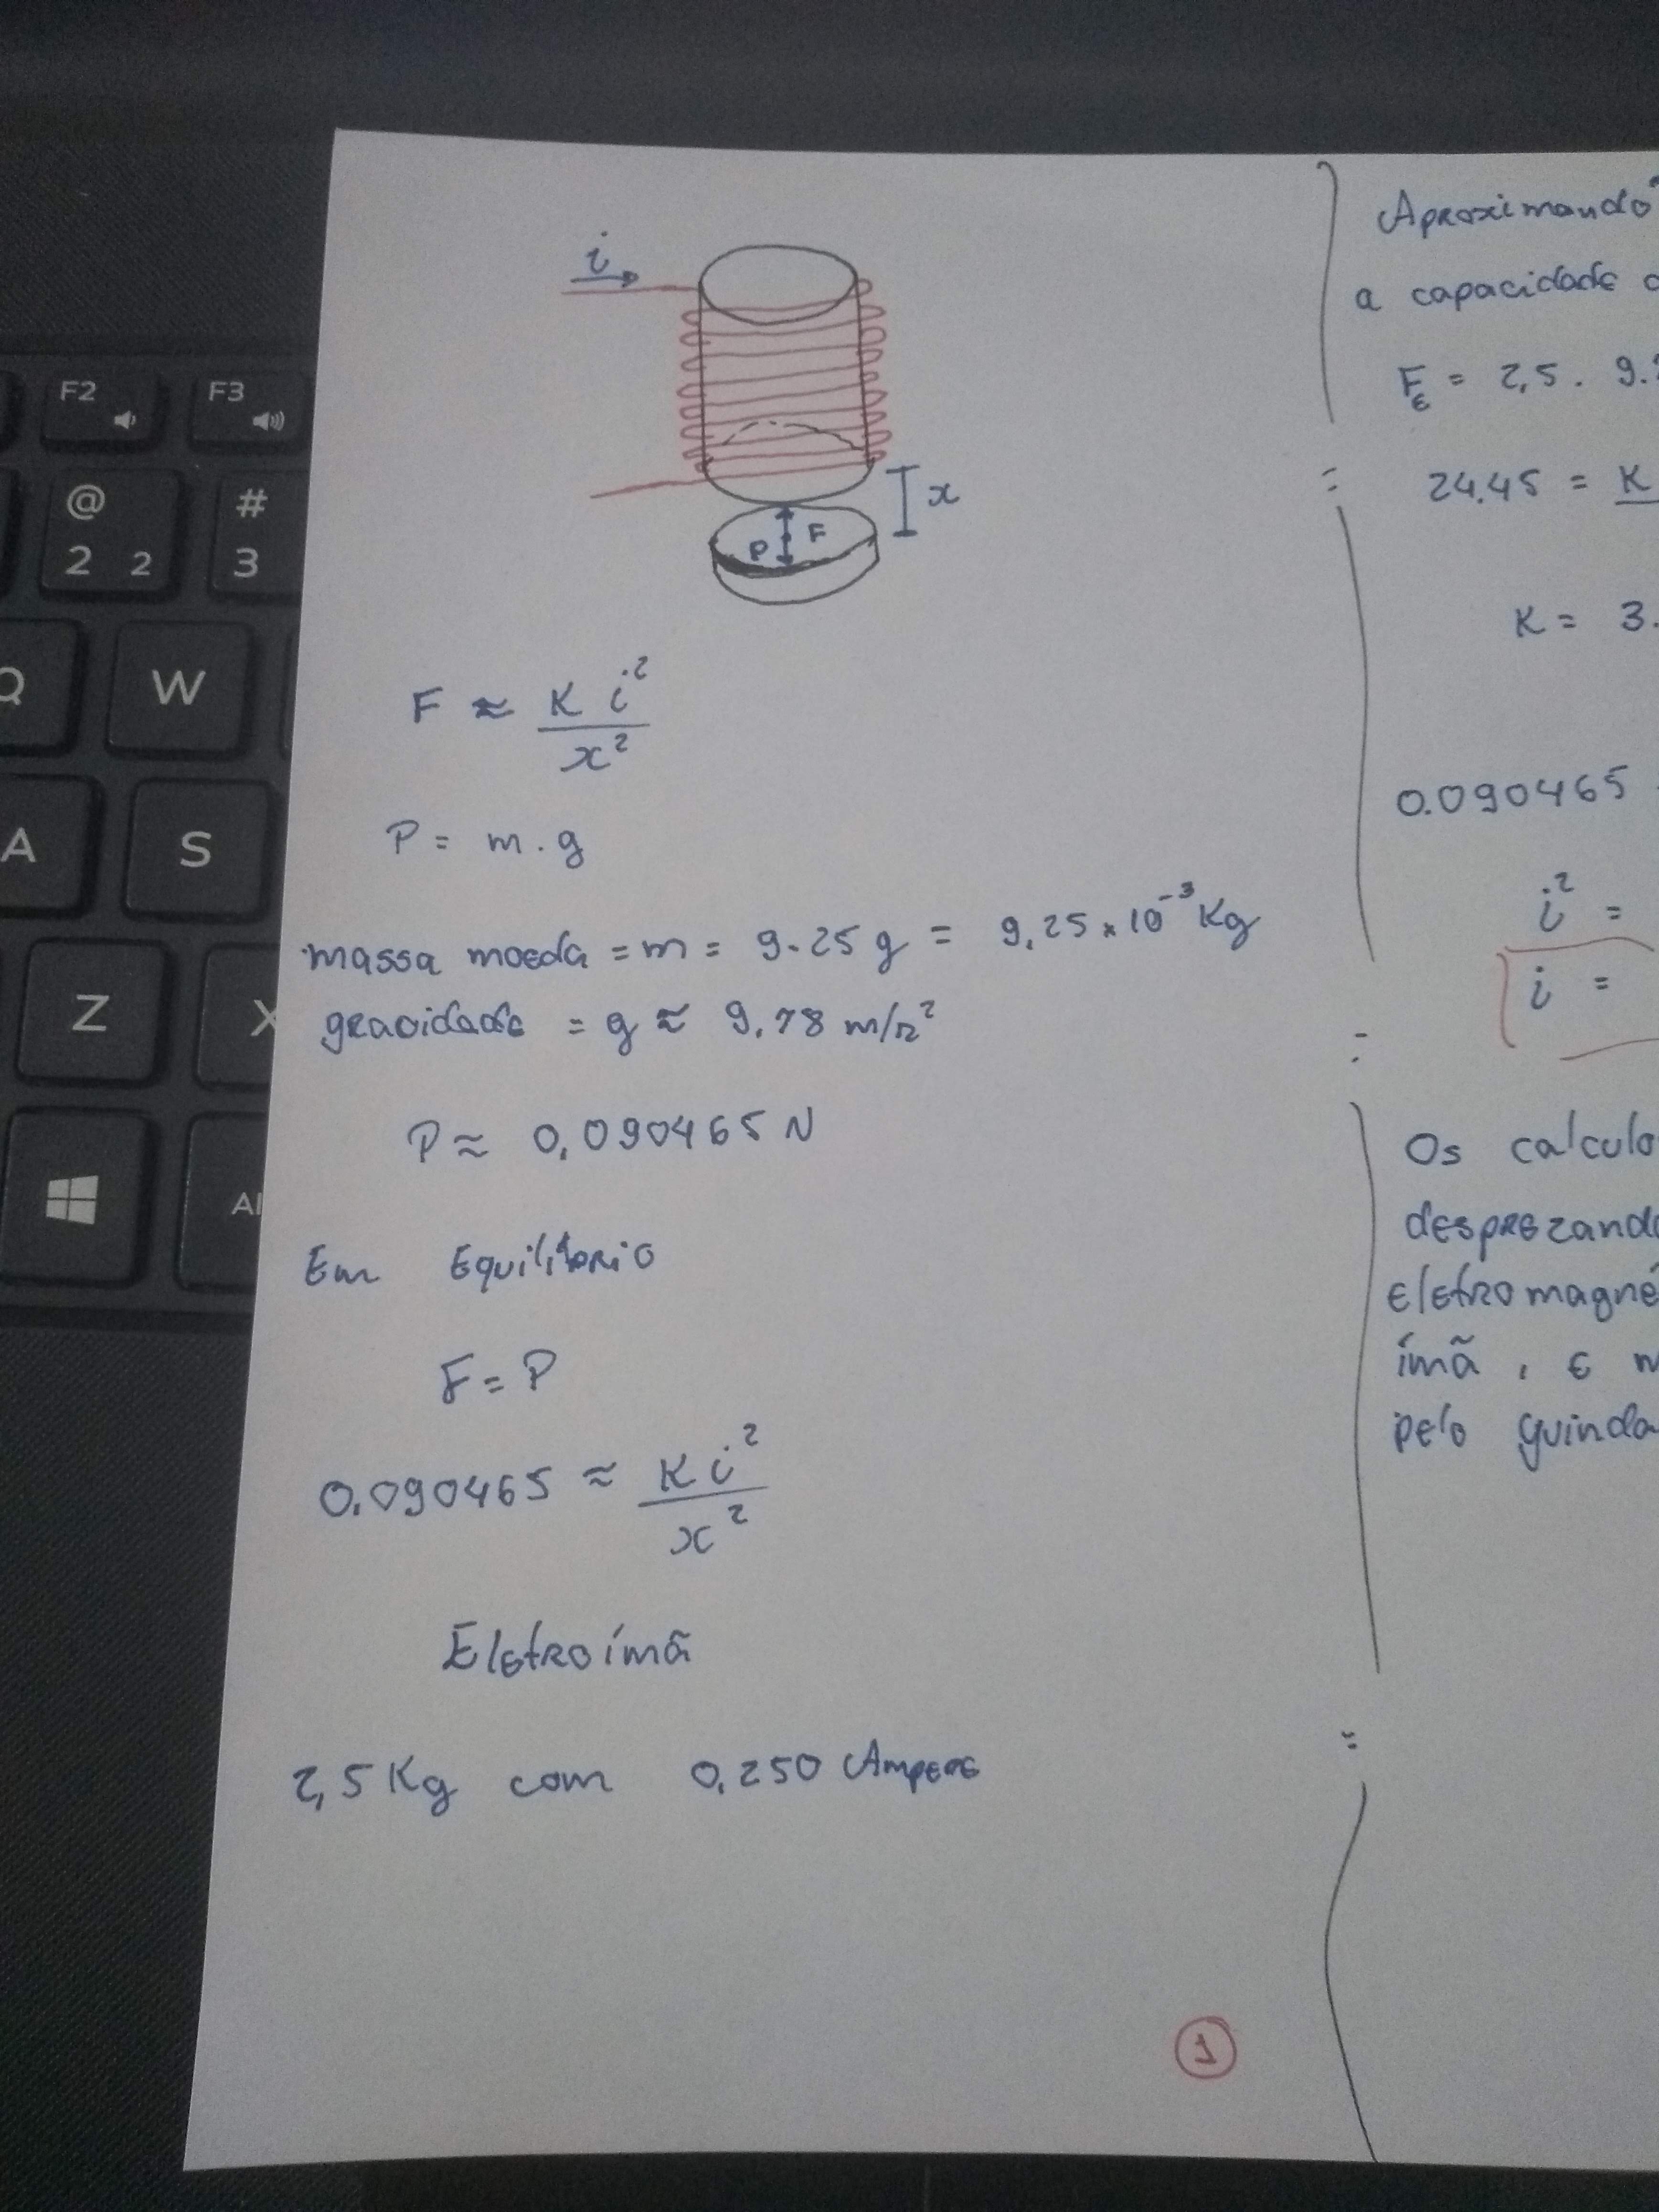 i
x
P F
F ≈ K i² / x²
P = m . g
massa moeda = m = 9.25 g = 9,25 x 10⁻³ Kg
gravidade = g ≈ 9,78 m/s²
P ≈ 0,090465 N
Em Equilibrio
F = P
0,090465 ≈ K i² / x²
Eletroímã
2,5 Kg com 0,250 Ampere
1
Aproximando
a capacidade
F_E = 2,5 . 9.
24.45 = K
K = 3.
0.090465
i² =
i =
Os calculo
desprezand
Eletromagné
ímã, E
pelo guinda
F2
F3
@
2 2
#
3
Q
W
A
S
Z
X
Al